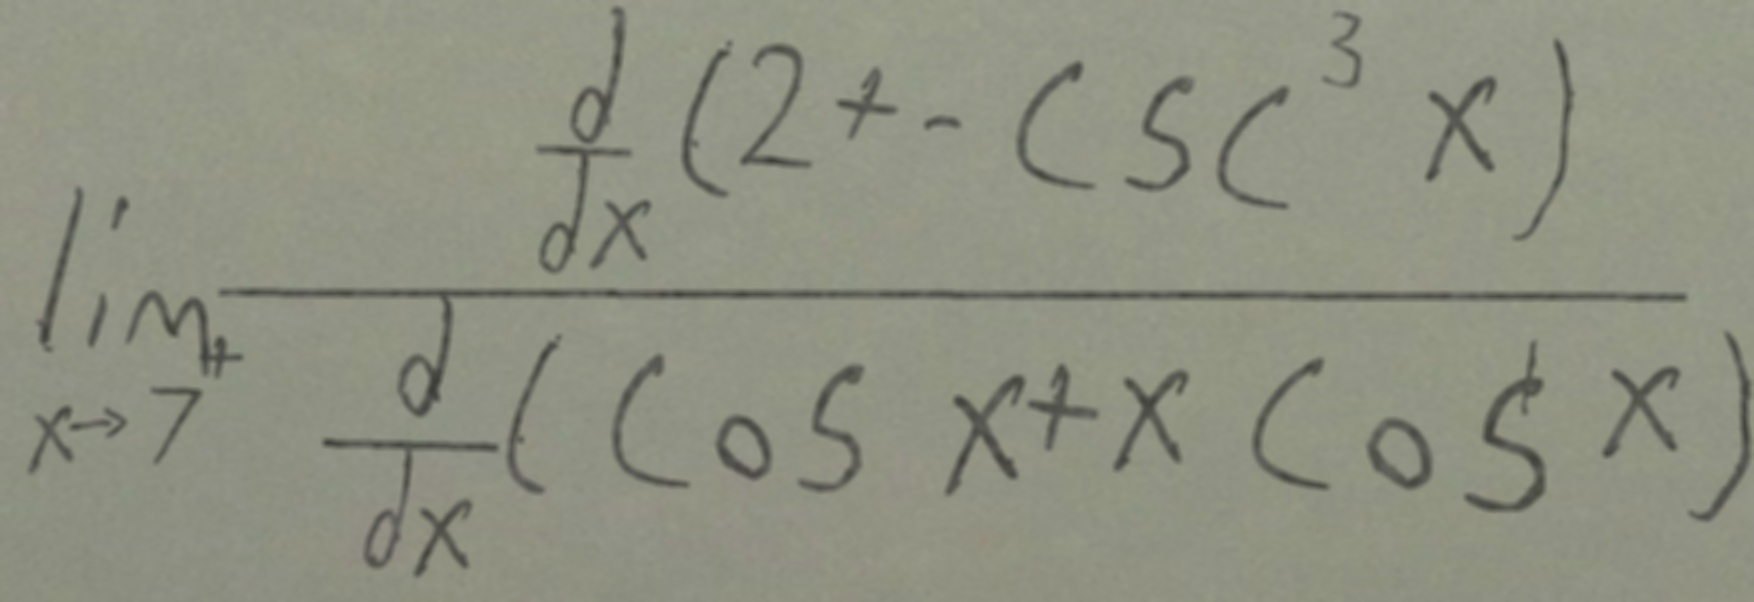 \lim_{x \to 7^+} \frac{\frac{d}{dx}(2 + -\csc^3 x)}{\frac{d}{dx}(\cos x + x \cos^1 x)}